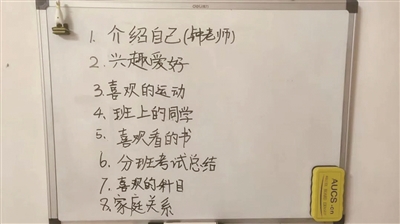 1. 介绍自己(钟老师)
2. 兴趣爱好
3. 喜欢的运动
4. 班上的同学
5. 喜欢看的书
6. 分班考试总结
7. 喜欢的科目
8. 家庭关系
AUCS.cn